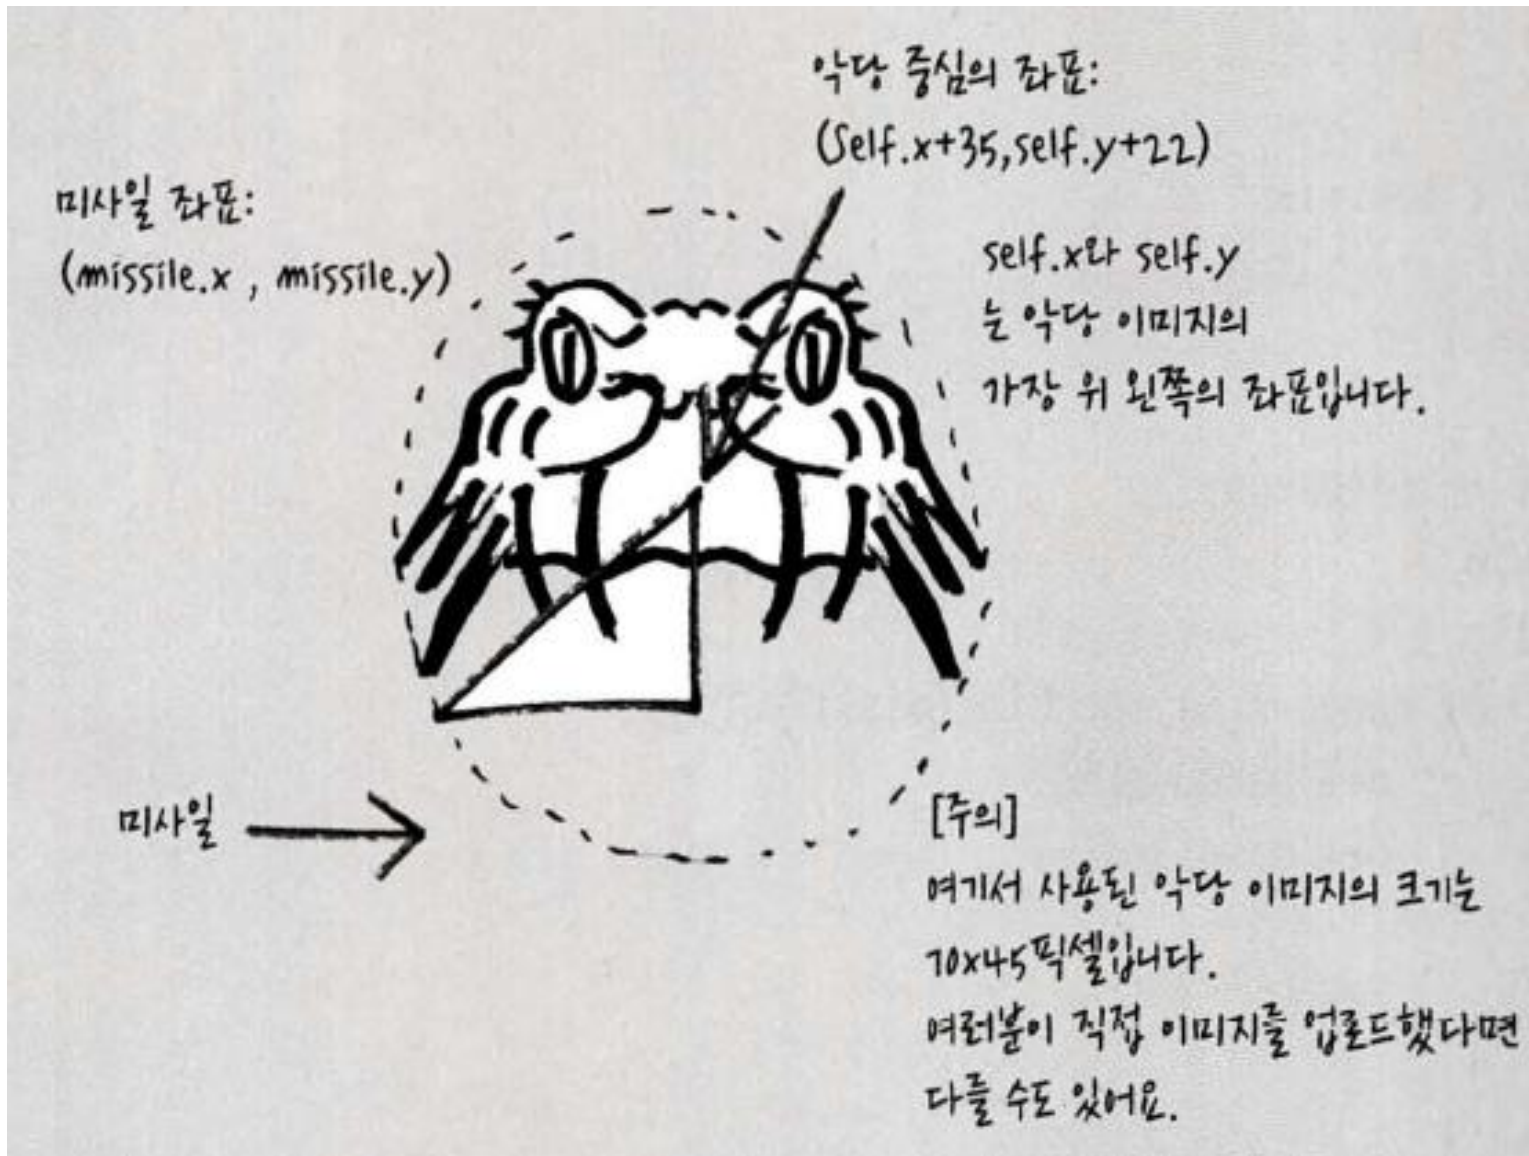 악당 중심의 좌표:
(Self.x+35,self.y+22)
미사일 좌표:
(missile.x , missile.y)
self.x와 self.y
는 악당 이미지의
가장 위 왼쪽의 좌표입니다.
미사일
[주의]
여기서 사용된 악당 이미지의 크기는
70x45픽셀입니다.
여러분이 직접 이미지를 업로드했다면
다를 수도 있어요.